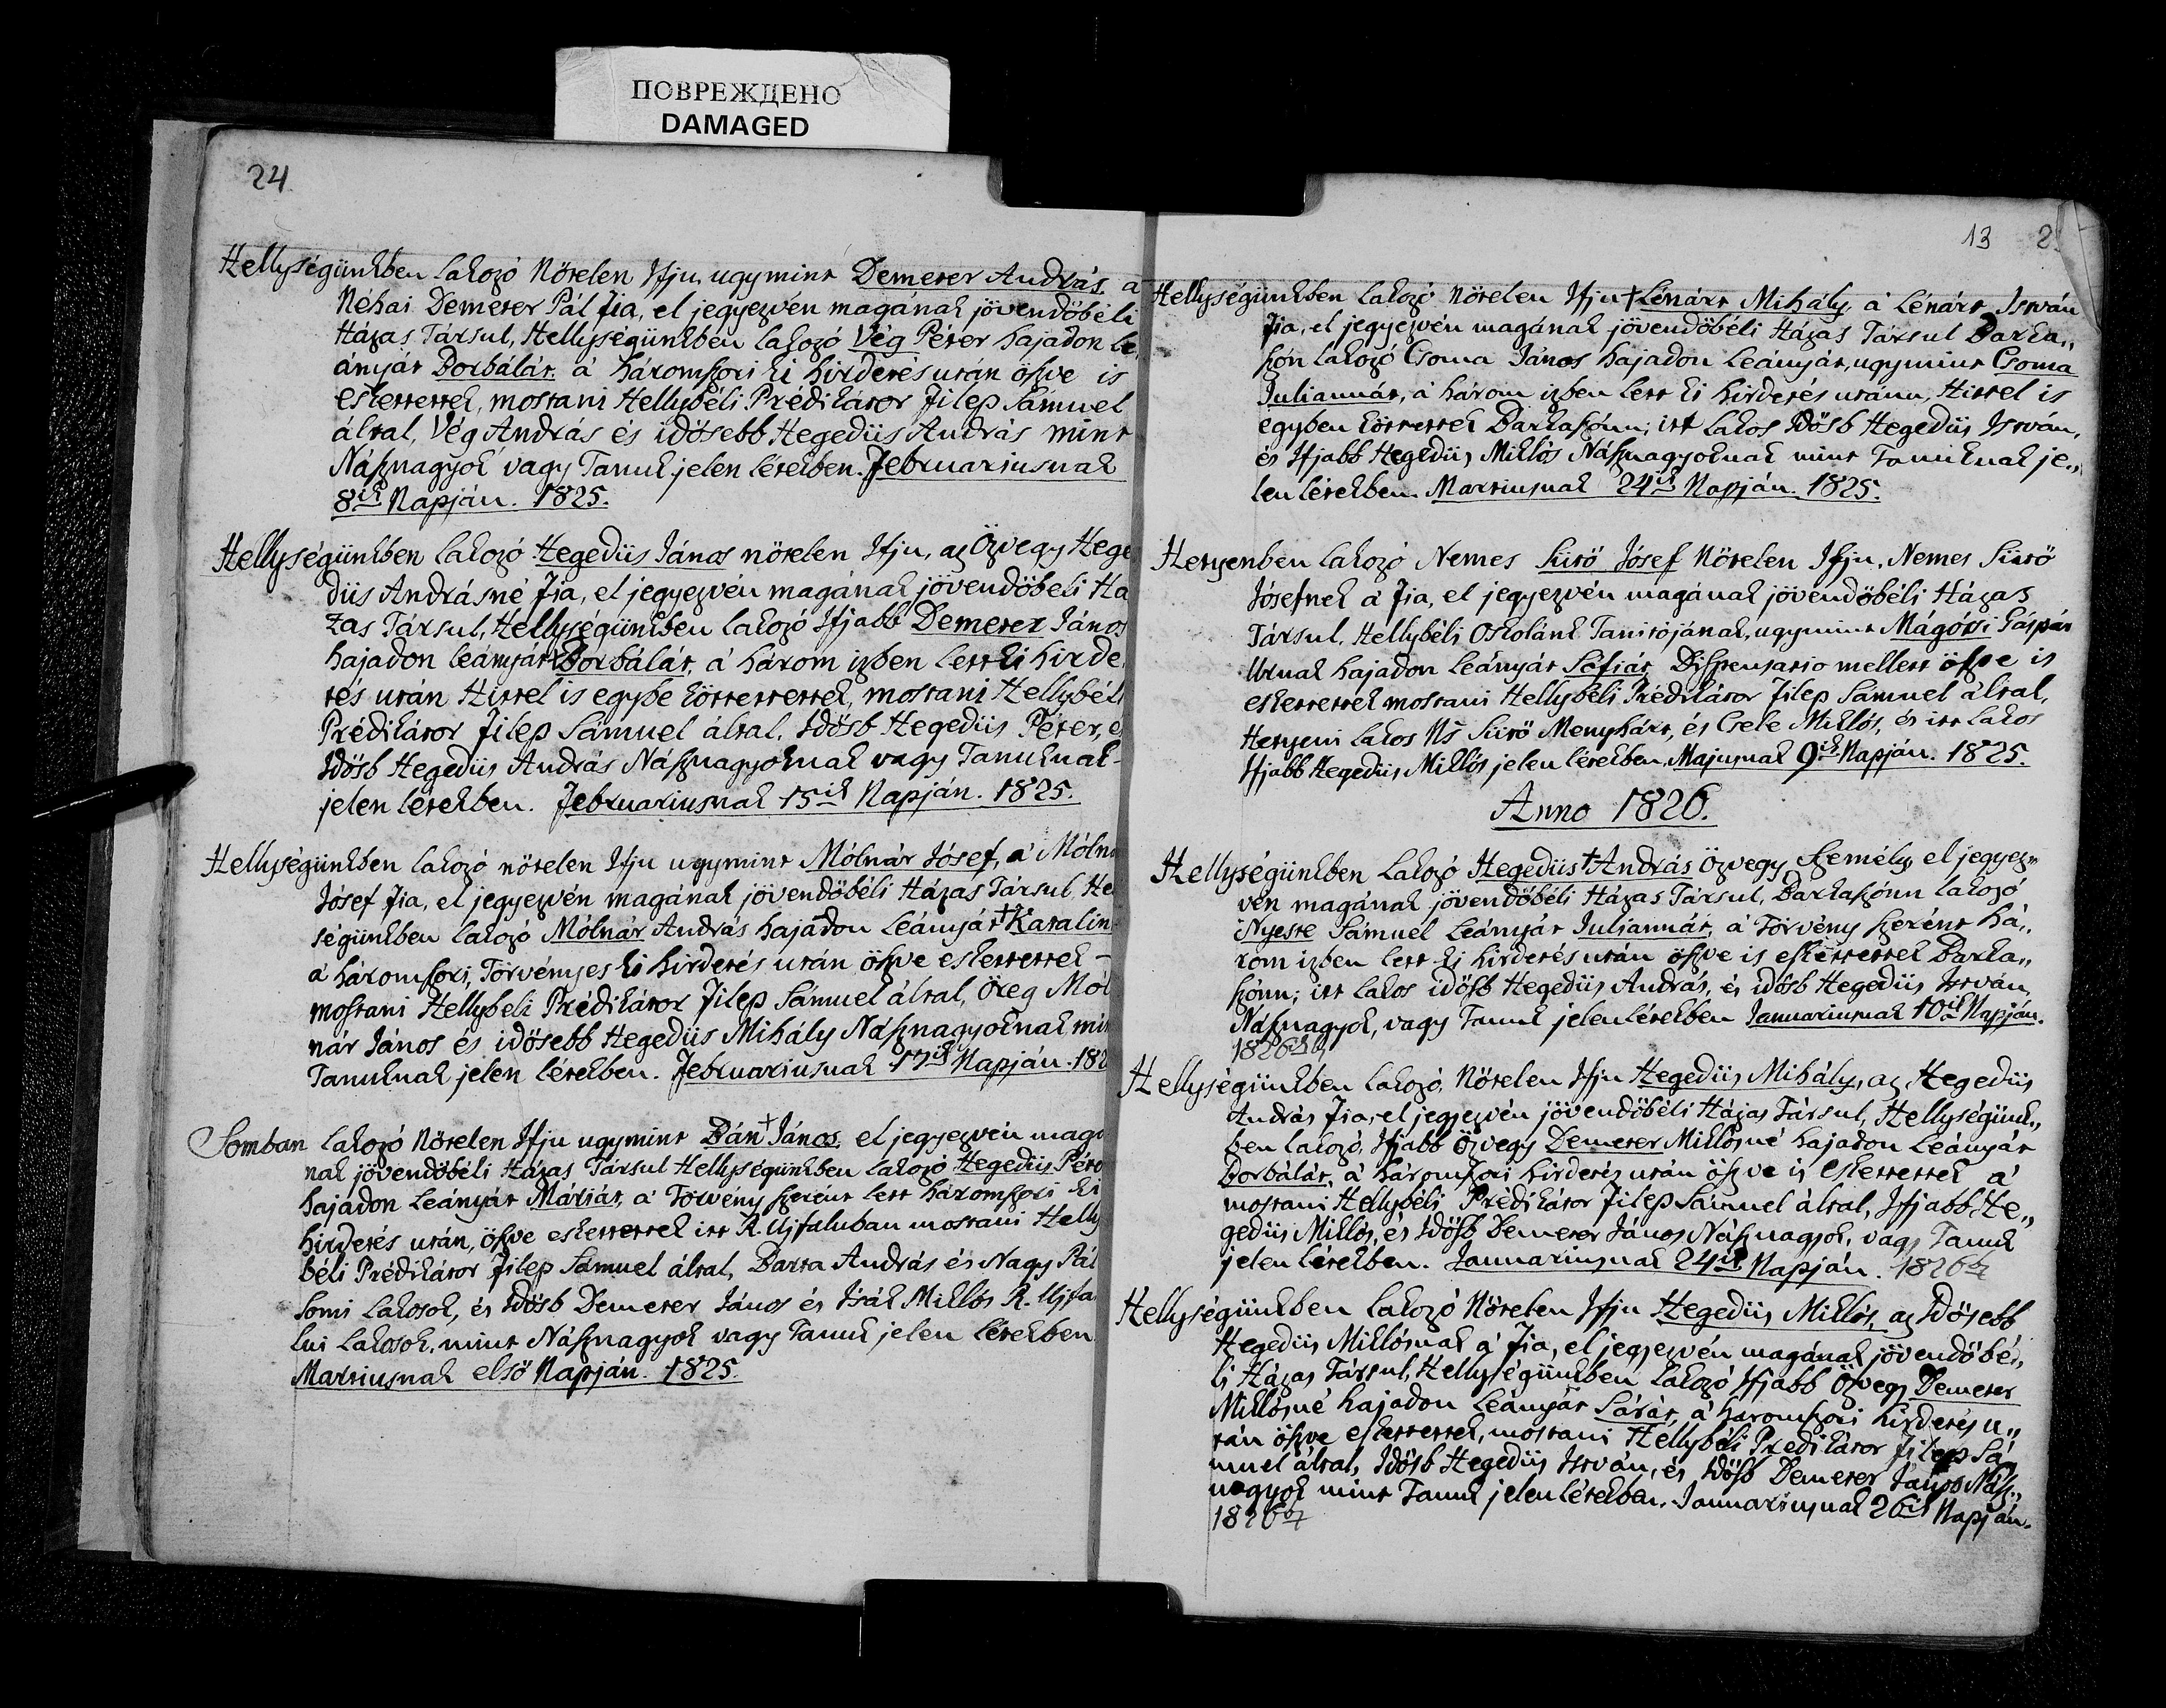 ПОВРЕЖДЕНО
DAMAGED
24
Hellységünkben lakozó Nötelen Ifju, ugymint Demeter András, a
Néhai Demeter Pál fia, el jegyezvén magának jövendöbéli
Házas Társul, Hellységünkben lakozó Vég Péter hajadon le,
ányát Borbálát, á háromszori ki hirdetés után öszve is
eskettettek, mostani Hellybéli Prédikátor Filep Sámuel
által, Vég András és idösebb Hegedüs András mint
Násznagyok vagy Tanuk jelen létekben. Februariusnak
8ik Napján. 1825.
Hellységünkben lakozó Hegedüs János nötelen Ifju, az Özvegy Hege
düs Andrásné fia, el jegyezvén magának jövendöbeli Ha
zas Társul, Hellységünkben lakozó Ifjabb Demeter János
hajadon leányát Borbálát, á három izben lett ki hirde
tés után Hittel is egybe köttettettek, mostani Hellybél
Prédikátor Filep Sámuel által, Idösb Hegedüs Péter, é
Idösb Hegedüs András Násznagyoknak vagy Tanuknak
jelen létekben. Februariusnak 15ik Napján. 1825.
Hellységünkben lakozó nötelen Ifju ugymint Mólnár Jósef, á Móln
Jósef fia, el jegyezvén magának jövendöbéli Házas Társul He
ségünkben lakozó Mólnár András hajadon leányát + Katalin
á háromszori, Törvényes ki hirdetés után öszve eskettettek -
mostani Hellybeli Prédikátor Filep Sámuel által, Öreg Mól
nár János és idösebb Hegedüs Mihály Násznagyoknak min
Tanuknak jelen létekben. Februariusnak 17ik Napján. 182
Somban lakozó Nötelen Ifju ugymint Bán + János, el jegyezvén magá
nak jövendöbéli Házas Társul Hellységünkben lakozó Hegedüs Péte
hajadon Leányát Máriát, á Törvény szerent lett háromszori ki
hirdetés után, öszve eskettettek itt R. Ujfaluban mostani Helly
béli Prédikátor Filep Sámuel által, Barta András és Nagy Pál
Somi Lakosok, és Idösb Demeter János és Isák Miklós R. Ujfa
lui Lakosok, mint Násznagyok vagy Tanuk jelen létekben
Martiusnak elsö Napján. 1825.
13 2
Hellységünkben lakozó Nötelen Ifju + Lénárt Mihály, á Lénárt István
fia, el jegyezvén magának jövendöbéli Házas Társul Barka„
szón lakozó Csoma János hajadon leányát, ugymint Csoma
Juliannát, á három izben lett ki hirdetés utánn, Hittel is
egyben köttettek Barkaszónn; itt lakos Idösb Hegedüs István,
és Ifjabb Hegedüs Miklós Násznagyoknak mint Tanuknak je„
len létekben. Martiusnak 24ik Napján. 1825.
Hetyenben lakozó Nemes Sütö Jósef Nötelen Ifju, Nemes Sütö
Jósefnek á fia, el jegyezvén magának jövendöbéli Házas
Társul. Hellybéli Oskolánk Tanitójának, ugymint Mágótsi Gáspár
Urnak hajadon leányát Sófiát, Dispensatio mellett öszve is
eskettettek mostani Hellybéli Prédikátor Filep Sámuel által,
Hetyeni lakos Ns Sütö Menyhárt, és Cseke Miklós, és itt lakos
Ifjabb Hegedüs Miklós jelen létekben, Majusnak 9ik Napján. 1825.
Anno 1826.
Hellységünkben Lakozó Hegedüs + András Özvegy Személy, el jegyez„
vén magának jövendöbéli Házas Társul, Barkaszónn lakozó
Nyeste Sámuel Leányát Juliannát, á Törvény szerént há„
rom izben lett ki hirdetés után öszve is eskettettek Barka„
szónn; itt lakos idösb Hegedüs András, és idösb Hegedüs István
Násznagyok, vagy Tanuk jelenlétekben Januariusnak 10ik Napján.
1826ik
Hellységünkben lakozó Nötelen Ifju Hegedüs Mihály, az Hegedüs
András fia, el jegyezvén jövendöbéli Házas Társul, Hellységünk„
ben lakozó, Ifjabb Özvegy Demeter Miklósné hajadon Leányát
Borbálát, á háromszori hirdetés után öszve is eskettettek á
mostani Hellybéli Prédikátor Filep Sámuel által, Ifjabb He„
gedüs Miklós, és Idösb Demeter János Násznagyok, vagy Tanuk
jelen létekben. Januariusnak 24ik Napján. 1826ba
Hellységünkben lakozó Nötelen Ifju Hegedüs Miklós, az Idösebb
Hegedüs Miklósnak á fia, el jegyezvén magának jövendöbé„
li Házas Társul, Hellységünkben lakozó Ifjabb Özvegy Demeter
Miklósné hajadon Leányát Sárát, á háromszori hirdetés u„
tán öszve eskettettek, mostani Hellybéli Prédikátor Filep Sá„
muel által, Idösb Hegedüs István, és Idösb Demeter János Nász„
nagyok mint Tanuk jelenlétekben. Januariusnak 26ik Napján.
1826ba